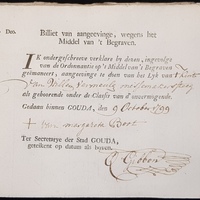 Deo.
Billiet van aangeevinge, wegens het
Middel van 't Begraven.
IK ondergeschreeve verklare by dezen, ingevolge
van de Ordonnantie op 't Middel van 't Begraven
geëmaneert, aangeevinge te doen van het Lyk van
van Willem
als gehoorende onder de Classis van d' onvermogende.
Gedaan binnen GOUDA, den 9 October 1799
van margareta
Ter Secretarye der Stad GOUDA,
geteikent op datum als boven.